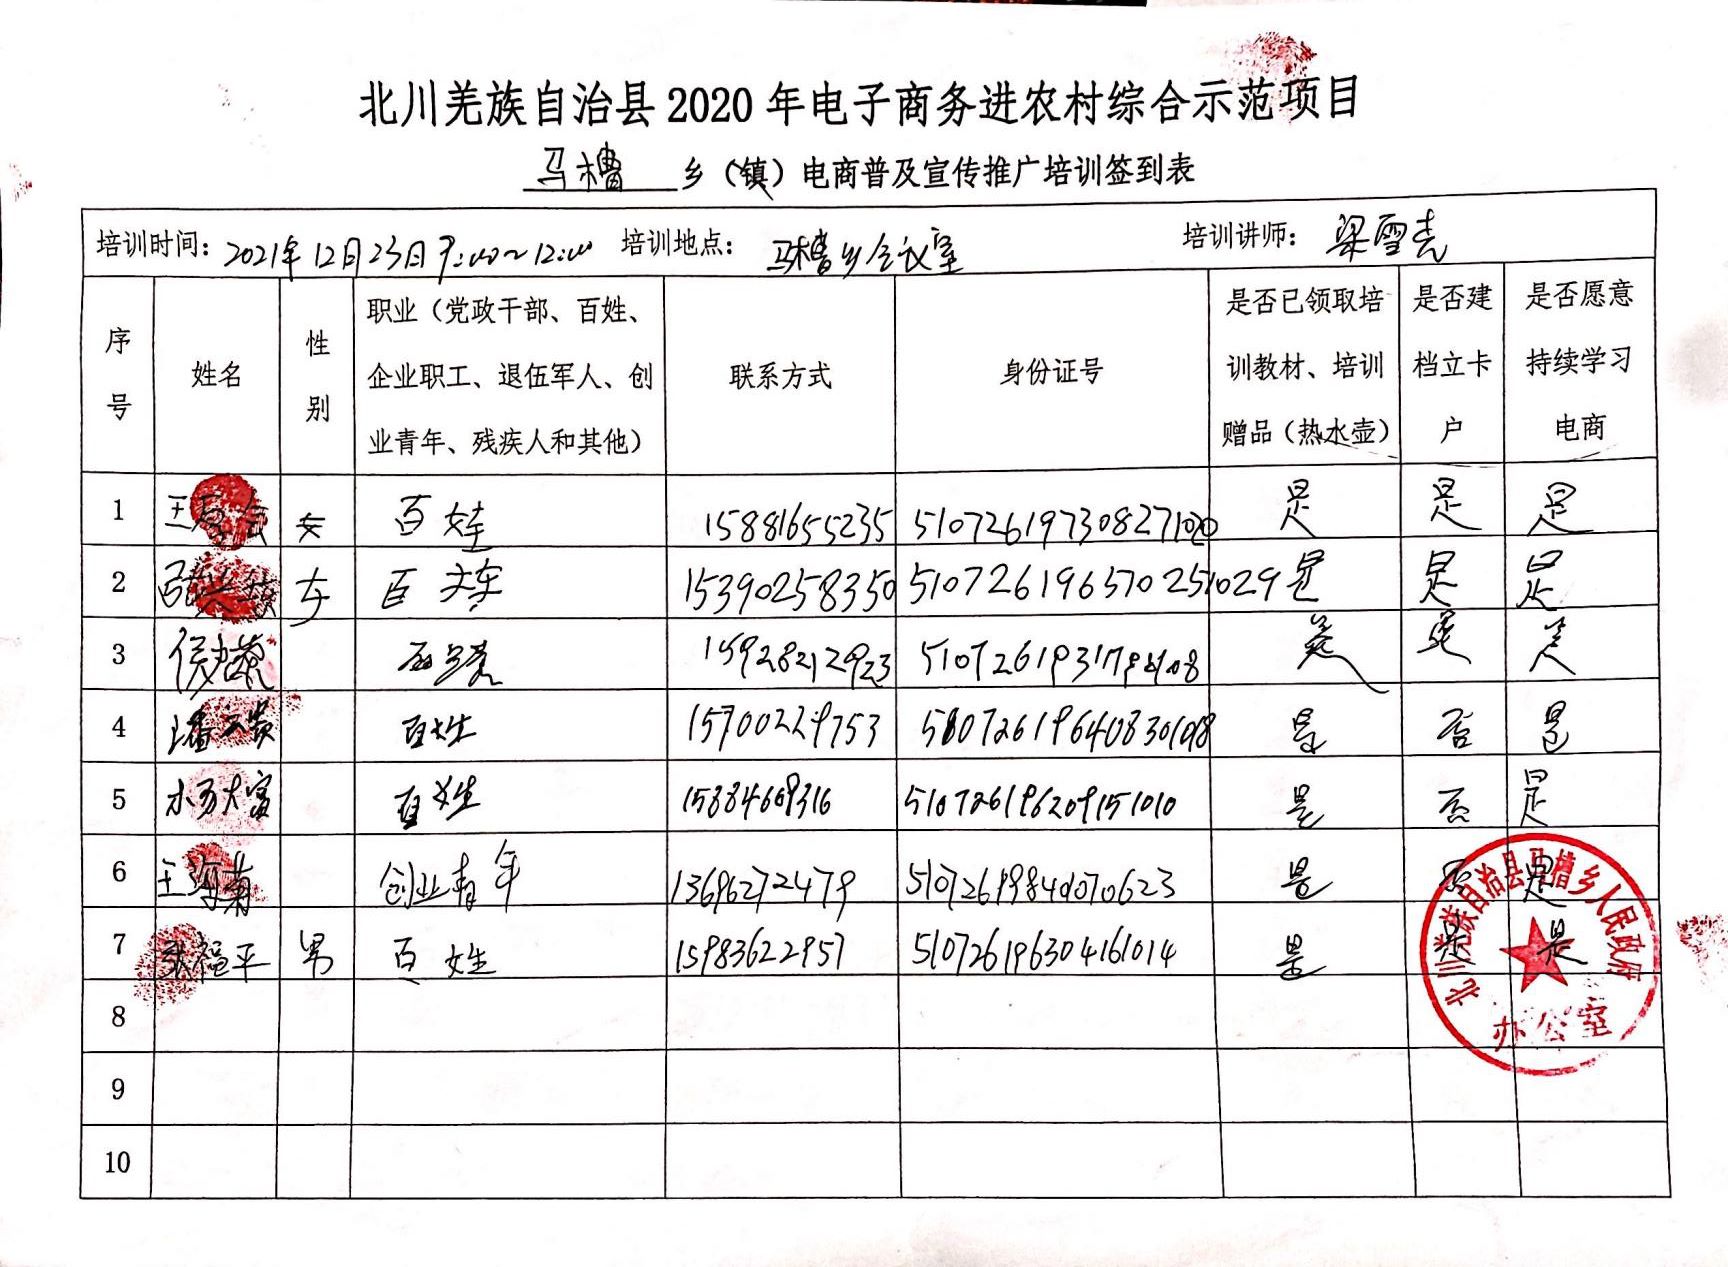 北川羌族自治县2020年电子商务进农村综合示范项目
马槽 乡（镇）电商普及宣传推广培训签到表
培训时间：2021年12月23日9:00~12:00 培训地点：马槽乡会议室 培训讲师：梁雪亮
序号 姓名 性别 职业（党政干部、百姓、企业职工、退伍军人、创业青年、残疾人和其他） 联系方式 身份证号 是否已领取培训教材、培训赠品（热水壶） 是否建档立卡户 是否愿意持续学习电商
1 女 百姓 15881655235 是 是 是
2 女 百姓 15390258350 510726196570251029 是 是 是
3 15928212923 是 是 是
4 百姓 15700229753 是 否 是
5 百姓 15884669316 510726196209151010 是 否 是
6 王海菊 创业青年 13696272479 是 否 是
7 张福平 男 百姓 15983622957 510726196304161014 是 是 是
8
9
10
北川羌族自治县马槽乡人民政府
办公室